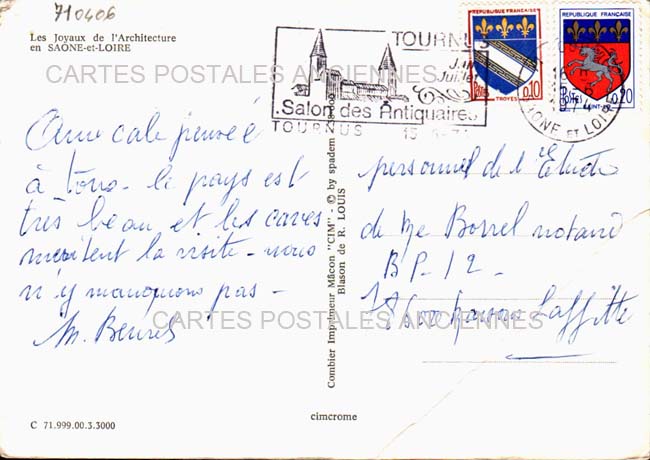 710406
Les Joyaux de l'Architecture
en SAÔNE-et-LOIRE
CARTES POSTALES ANCIENNES
TOURNUS
Juin
Juillet
Salon des Antiquaires
TOURNUS 15
REPUBLIQUE FRANÇAISE
Postes 0,10
TROYES
REPUBLIQUE FRANÇAISE
Postes 0,20
SAINT-LO
SAONE ET LOIRE
Amicale pensée
à tous. le pays est
très beau et les caves
méritent la visite - nous
n'y manquons pas -
M.
Combier Imprimeur Mâcon "CIM" - © by spadem
Blason de R. LOUIS
personnel de l'Etude
de Me Borrel notaire
BP. 12 -
Maisons Laffitte
CARTES POSTALES ANCIENNES
cimcrome
C 71.999.00.3.3000